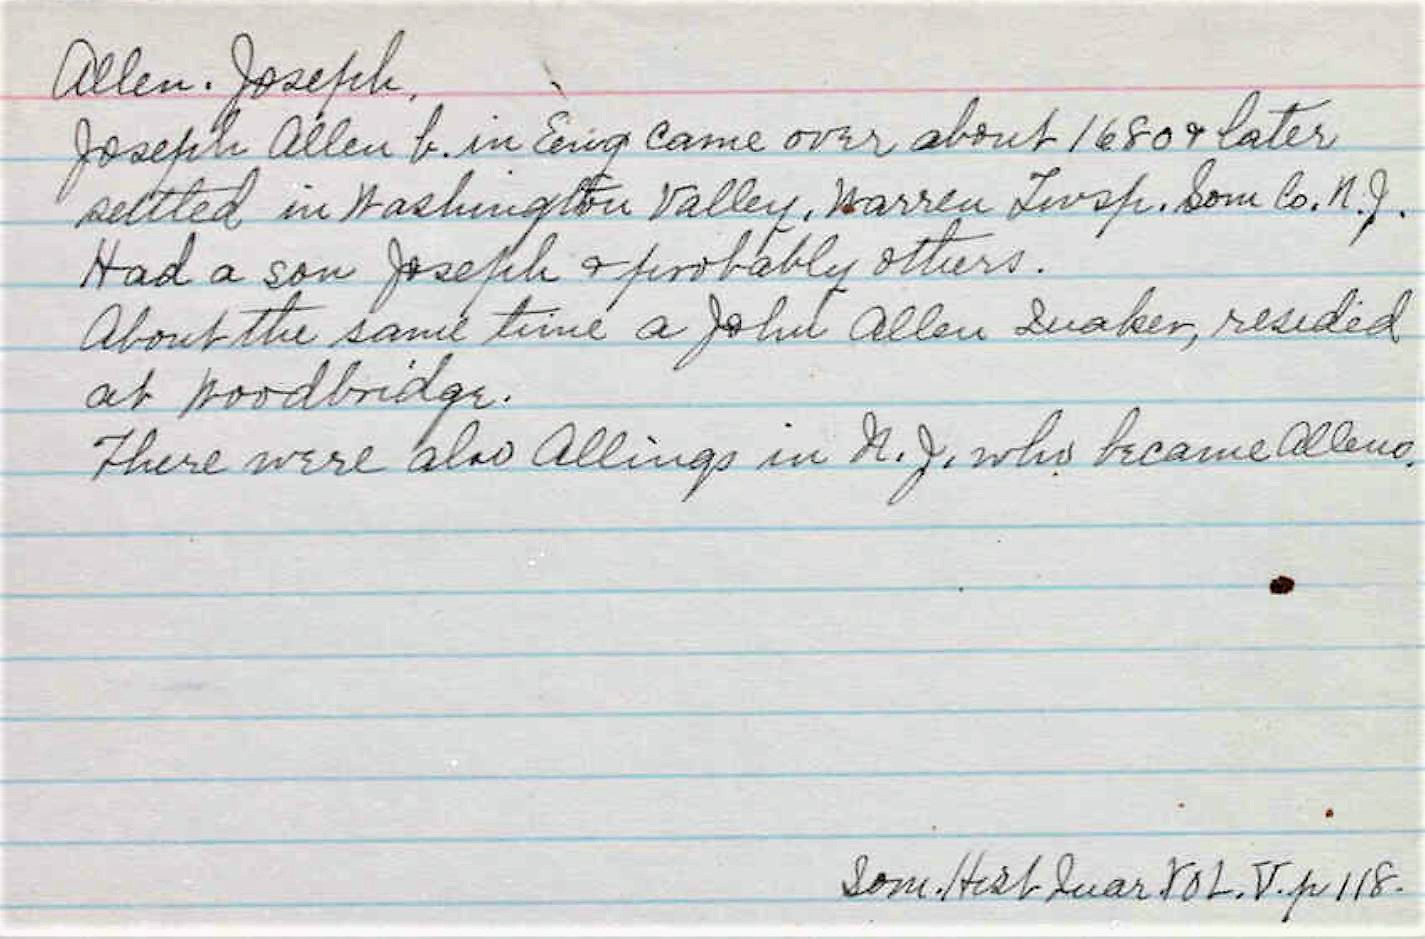 Allen. Joseph,
Joseph Allen b. in Eng came over about 1680 & later
settled in Washington Valley, Warren Twsp. Som Co. N.J.
Had a son Joseph & probably others.
About the same time a John Allen Quaker, resided
at Woodbridge.
There were also Allings in N.J. who became Allens.
Som. Hist Quar VOL. V. p 118.